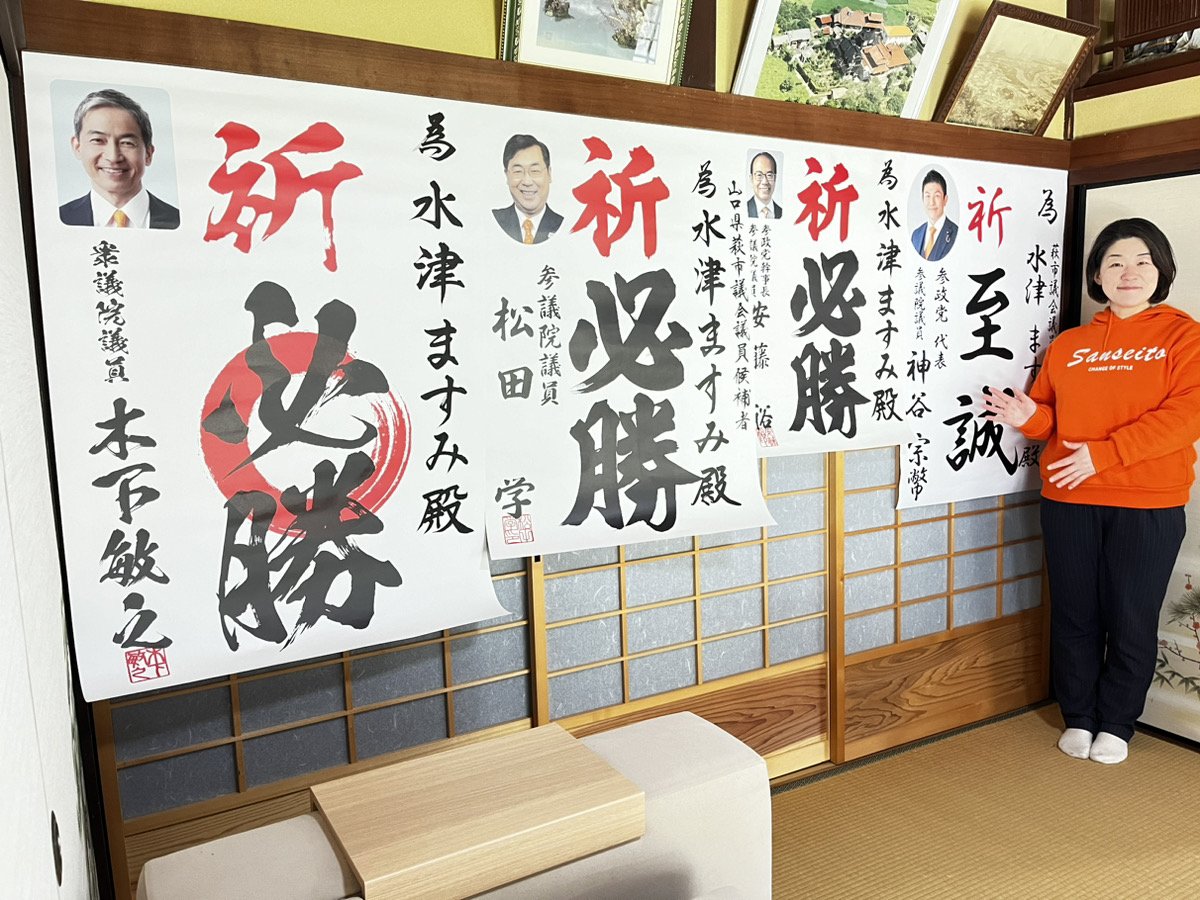 為 水津ますみ殿
祈
必勝
衆議院議員 木下敏之
為 水津ますみ殿
山口県萩市議会議員候補者
祈
必勝
参議院議員
松田 学
為 水津ますみ殿
祈
必勝
参政党幹事長
参議院議員
安藤 裕
萩市議会議員
為 水津 ます
殿
祈
至誠
参政党 代表
参議院議員
神谷 宗幣
Sanseito
CHANGE OF STYLE